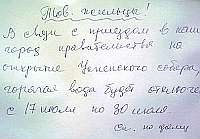 Тов. жильцы!
В связи с приездом в наш
город правительства на
открытие Успенского собора,
горячая вода будет отключе
с 17 июля по 30 июля